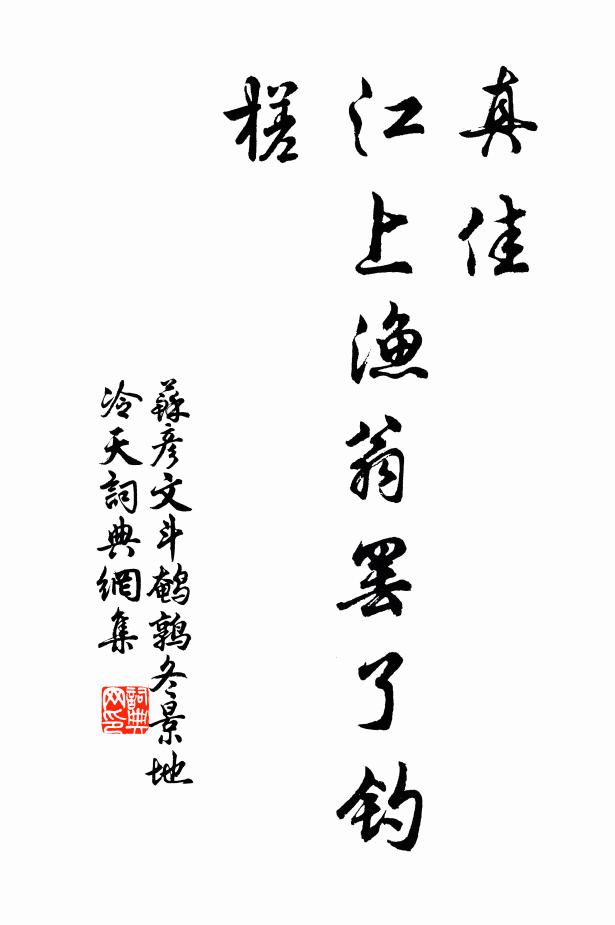 真佳
江上漁翁罷了釣
槎
蘇彦文斗鹌鹑冬景地
冷天詞典網集
詞典
网印